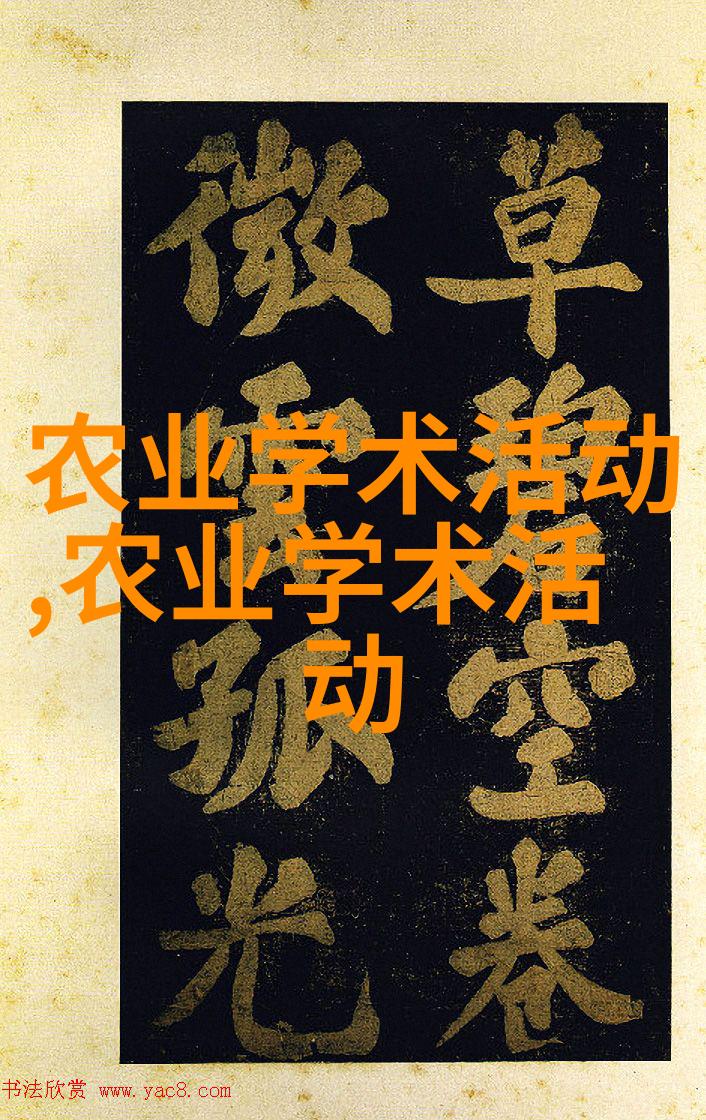 草碧空卷
微雲孤光
农业学术活动
,农业学术活
动
书法欣赏 www.yac8.com